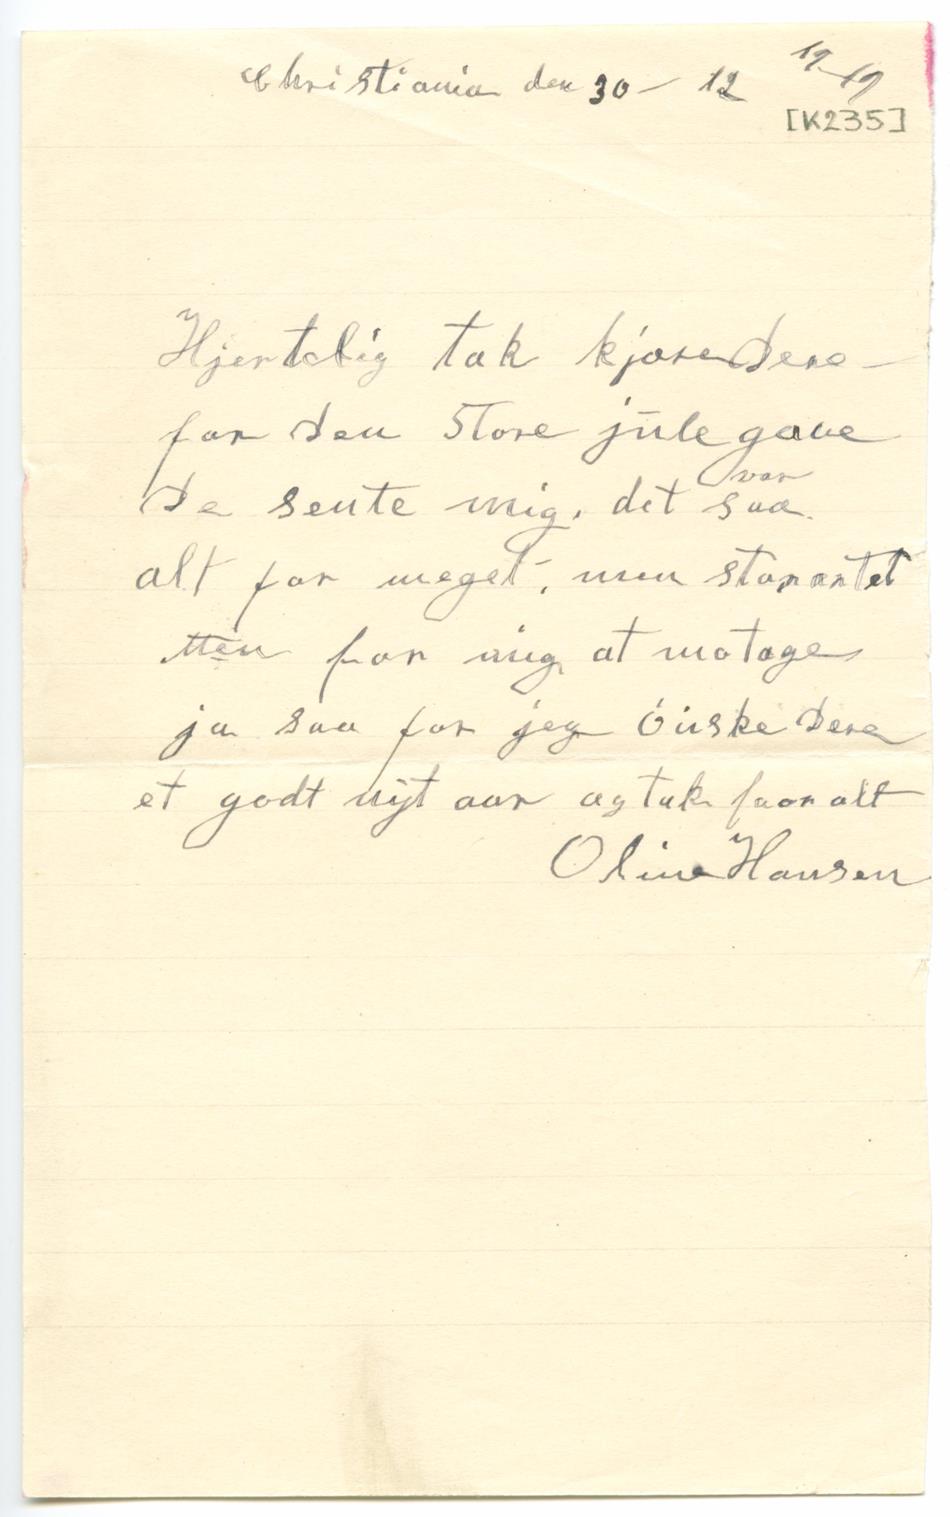 Christiania den 30 – 12 19–19
[K235]
Hjertelig tak kjære Dere –
for den store julegave
De sente mig. det var saa
alt for meget, men storartet
for mig at motage
ja saa for jeg önske Dere
et godt nyt aar og tak faor alt
Oline Hansen